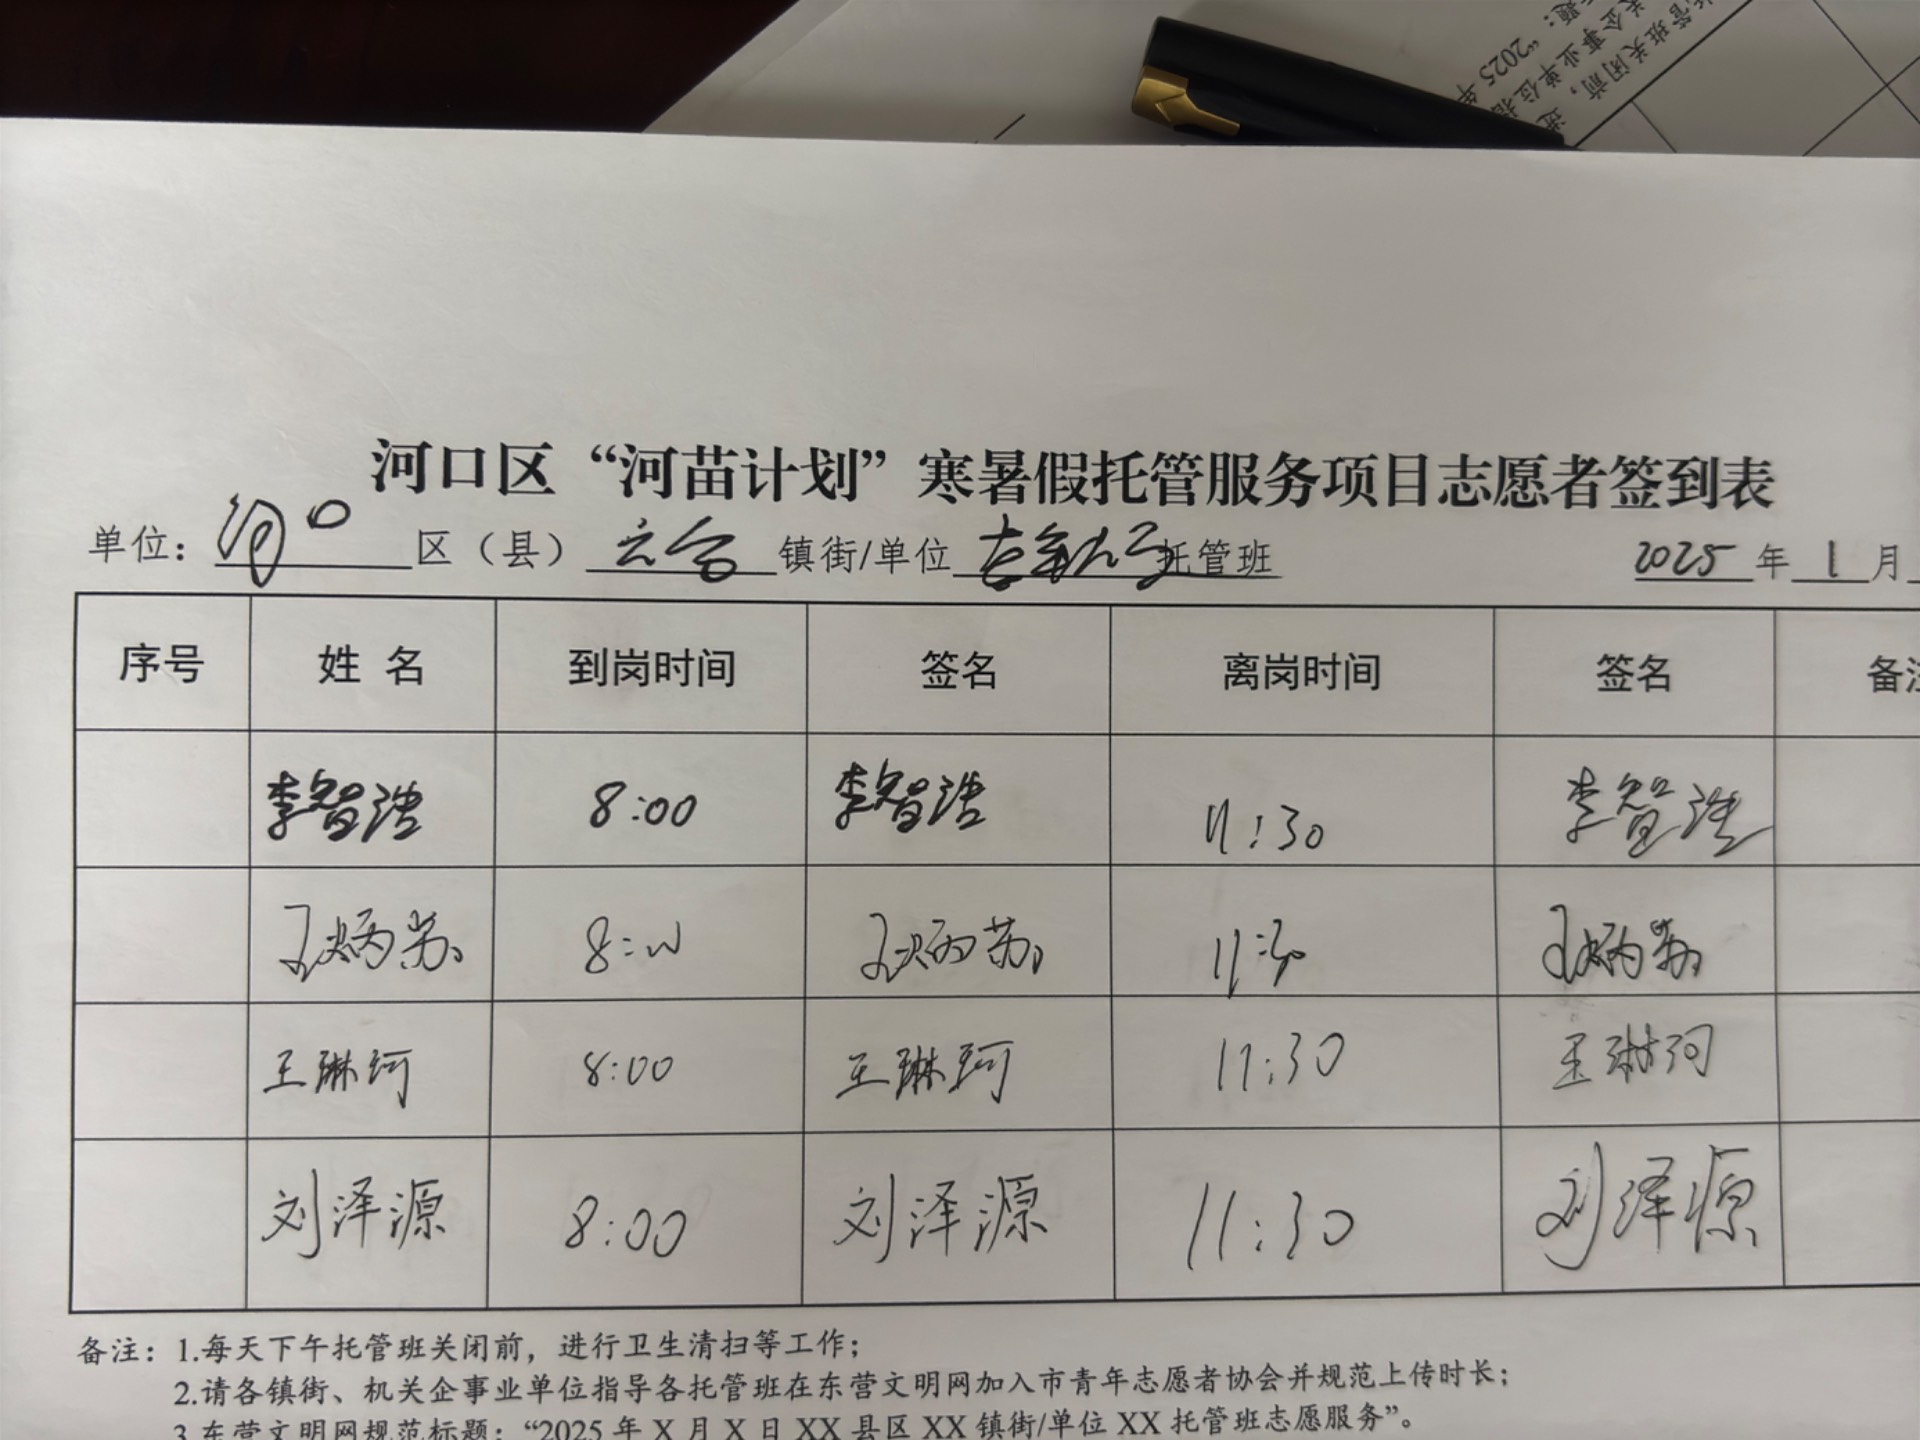 长管班关闭前，进
关企事业单位指
题：“2025年
河口区“河苗计划”寒暑假托管服务项目志愿者签到表
单位：河口区（县）六合镇街/单位托管班 2025年1月
序号 姓名 到岗时间 签名 离岗时间 签名 备注
李智浩 8:00 李智浩 11:30 李智浩
王炳苏 8:00 王炳苏 11:30 王炳苏
王琳珂 8:00 王琳珂 11:30 王琳珂
刘泽源 8:00 刘泽源 11:30 刘泽源
备注：1.每天下午托管班关闭前，进行卫生清扫等工作；
2.请各镇街、机关企事业单位指导各托管班在东营文明网加入市青年志愿者协会并规范上传时长；
3.东营文明网规范标题：“2025年X月X日XX县区XX镇街/单位XX托管班志愿服务”。